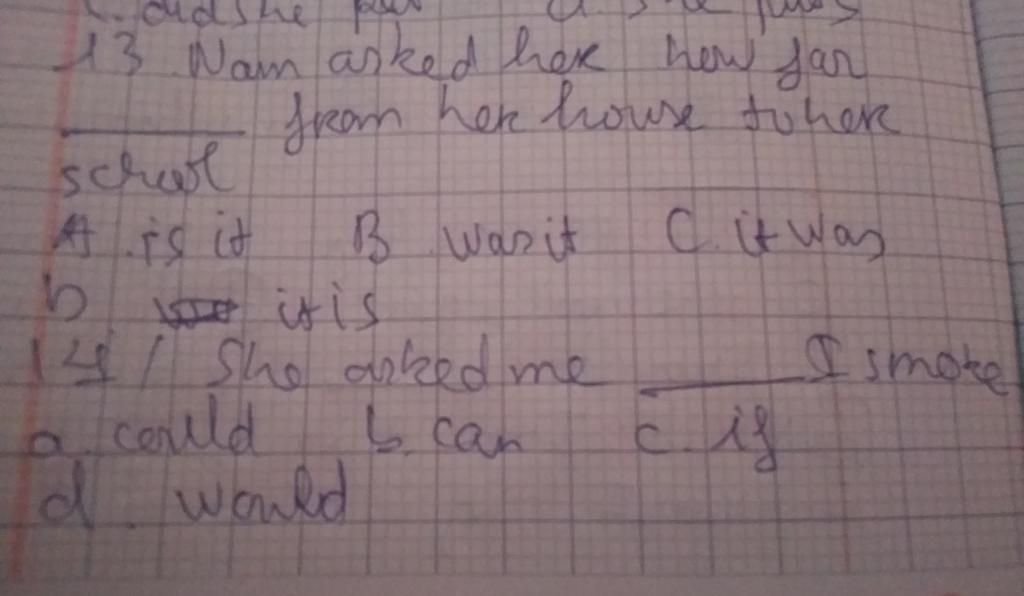 did she put d. she puts
13 Nam asked her how far
from her house to her
school
A. is it B was it C. it was
D it is
14 / She asked me I smoke
a. could b. can c. if
d. would